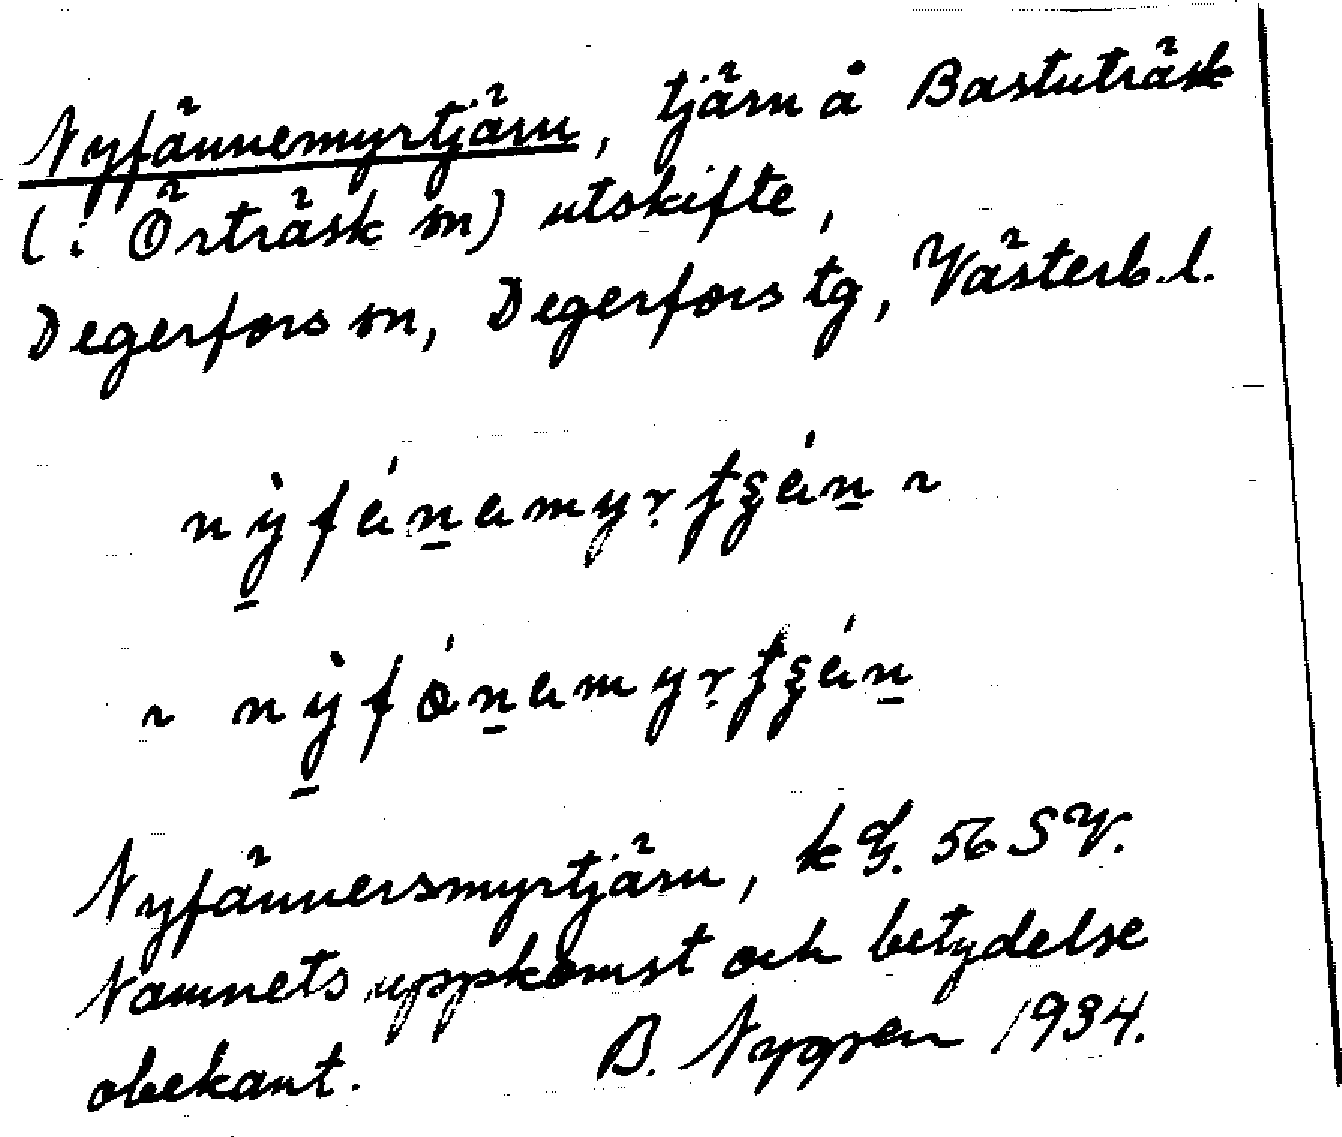 Nyfännemyrtjärn, tjärn å Bastuträsk
(i Örträsk sn) utskifte,
Degerfors sn, Degerfors tg, Västerb. l.
Nyfännersmyrtjärn, k 56 SV.
Namnets uppkomst och betydelse
obekant. B. Nygren 1934.